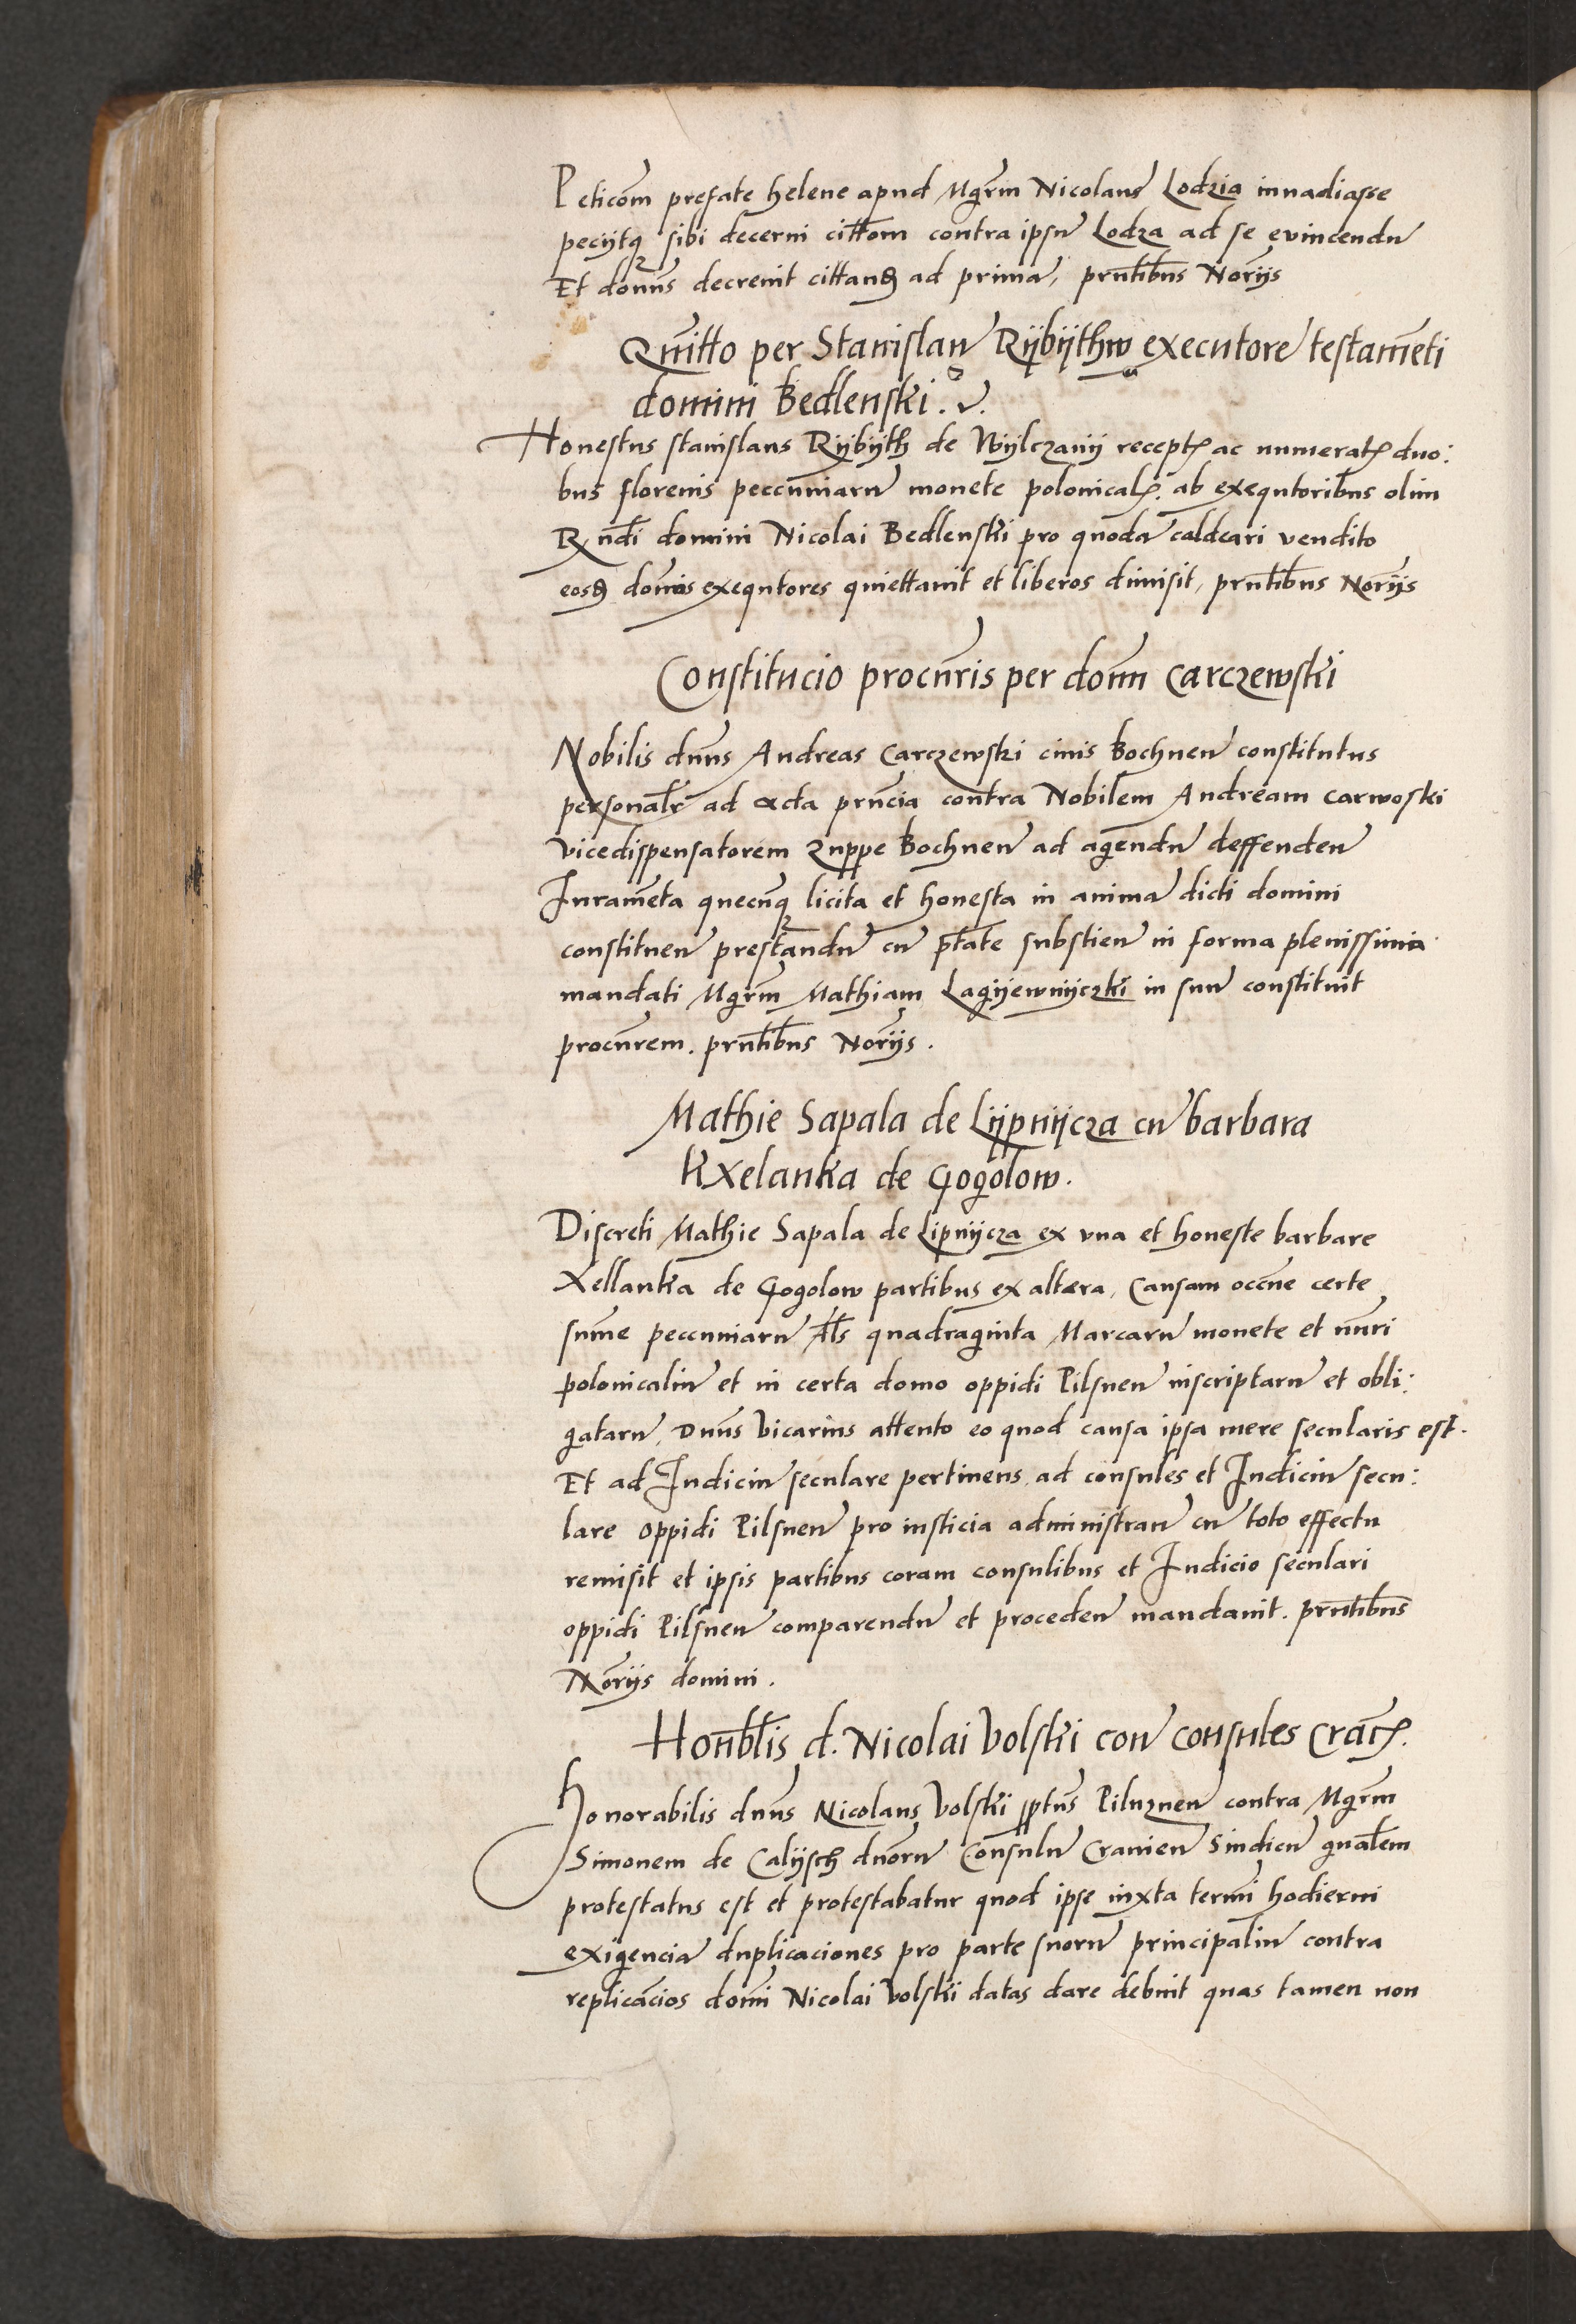 Peticom̄ prefate helene apud Mgr̄m Nicolaum Lodzia inuadiasse
peciitq̨ sibi decerni citt̄om contra ipsum Lodza ad se euincendum
Et domn̄s decreuit cittand̨ ad primam, pr̄ntibus Nor̄ijs
Quitto per Stanislaum Rijbijthw executorem testamēti
domini Bedlenski.
Honestus stanislaus Rijbijth de Wijlczanij receptꝭ ac numeratꝭ duo:
bus florenis peccūniarum monete polonicalꝭ. ab exequtoribus olim
Rn̄di domini Nicolai Bedlenski pro quodam caldeari vendito
eosd̨ domn̄os exequtores quiettauit et liberos dimisit, pr̄ntibus Nor̄ijs
Constitucio procūris per domn̄ Carczewski
Nobilis dnn̄s Andreas Carczewski ciuis Bochnen̄ constitutus
personalr̄ ad acta pr̄ncia contra Nobilem Andream Carwoski
vicedispensatorem zuppe Bochnen̄ ad agendum deffenden̄
Iuramēta quecūq̨ licita et honesta in animam dicti domini
constituen̄ prestandum cum p̄tate substien̄ in forma plenissima
mandati Mgr̄m Mathiam Lagijewnijczki in suum constituit
procūrem. pr̄ntibus Nor̄ijs.
Mathie Sapala de Lijpnijcza cum barbara
Kxelanka de Gogolow.
Discreti Mathie Sapala de Lipnijcza ex vna et honeste barbare
Xellanka de Gogolow partibus ex altera, Causam occn̄e certe
sum̄e peccuniarum Als̄ quadraginta Marcarum monete et nūri
polonicalium et in certa domo oppidi Pilsnen̄ inscriptarum et obli:
gatarum. Dnn̄s Vicarius attento eo quod causa ipsa mere secularis est.
Et ad Iudicium seculare pertinens, ad consules et Iudicium secu:
lare oppidi Pilsnen̄ pro iusticia administran̄ cum toto effectu
remisit et ipsis partibus coram consulibus et Iudicio seculari
oppidi Pilsnen̄ comparendum et proceden̄ mandauit. pr̄ntibus
Nor̄ijs domini.
Honbl̄is d. Nicolai Volski con̄ consules Cracꝭ.
Honorabilis dnn̄s Nicolaus Volski pptūs Piluznen̄ contra Mgr̄m
Simonem de Calijsch dnōrum Consulum Crauien̄ Sindicum gnalēm
protestatus est et protestabatur quod ipse iuxta termī hodierni
exigenciam duplicaciones pro parte suorum principalium contra
replicac̄ios domī Nicolai Volski datas dare debuit quas tamen non